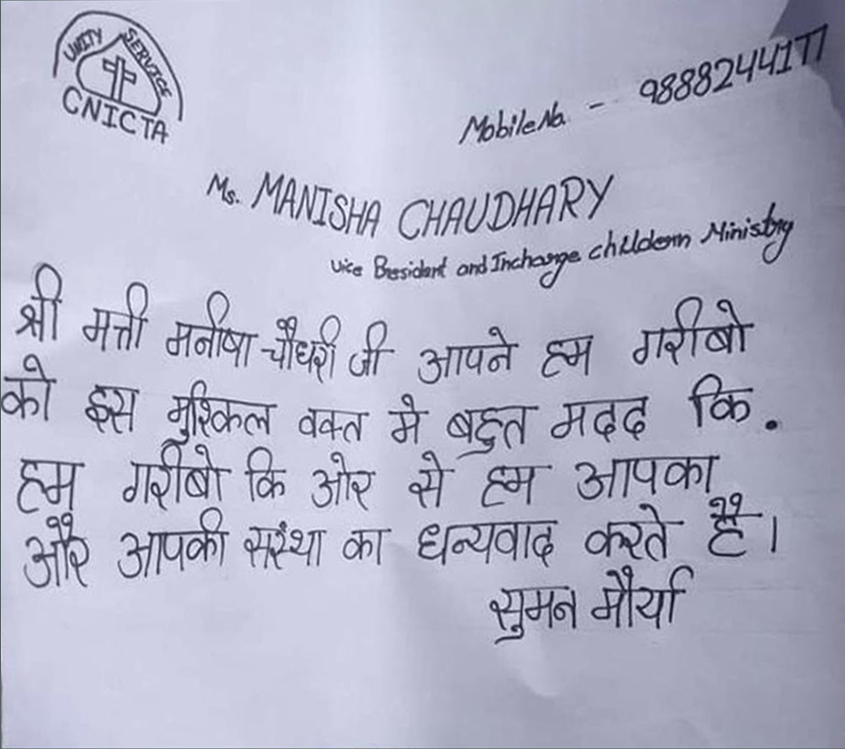 UNITY SERVICE
CNICTA
Mobile No. - 9888244177
Ms. MANISHA CHAUDHARY
Vice President and Incharge childern Ministry
श्री मत्ती मनीषा चौधरी जी आपने हम गरीबो
को इस मुश्किल वक्त मे बहुत मदद कि.
हम गरीबो कि ओर से हम आपका
और आपकी संस्था का धन्यवाद करते है।
सुमन मौर्या